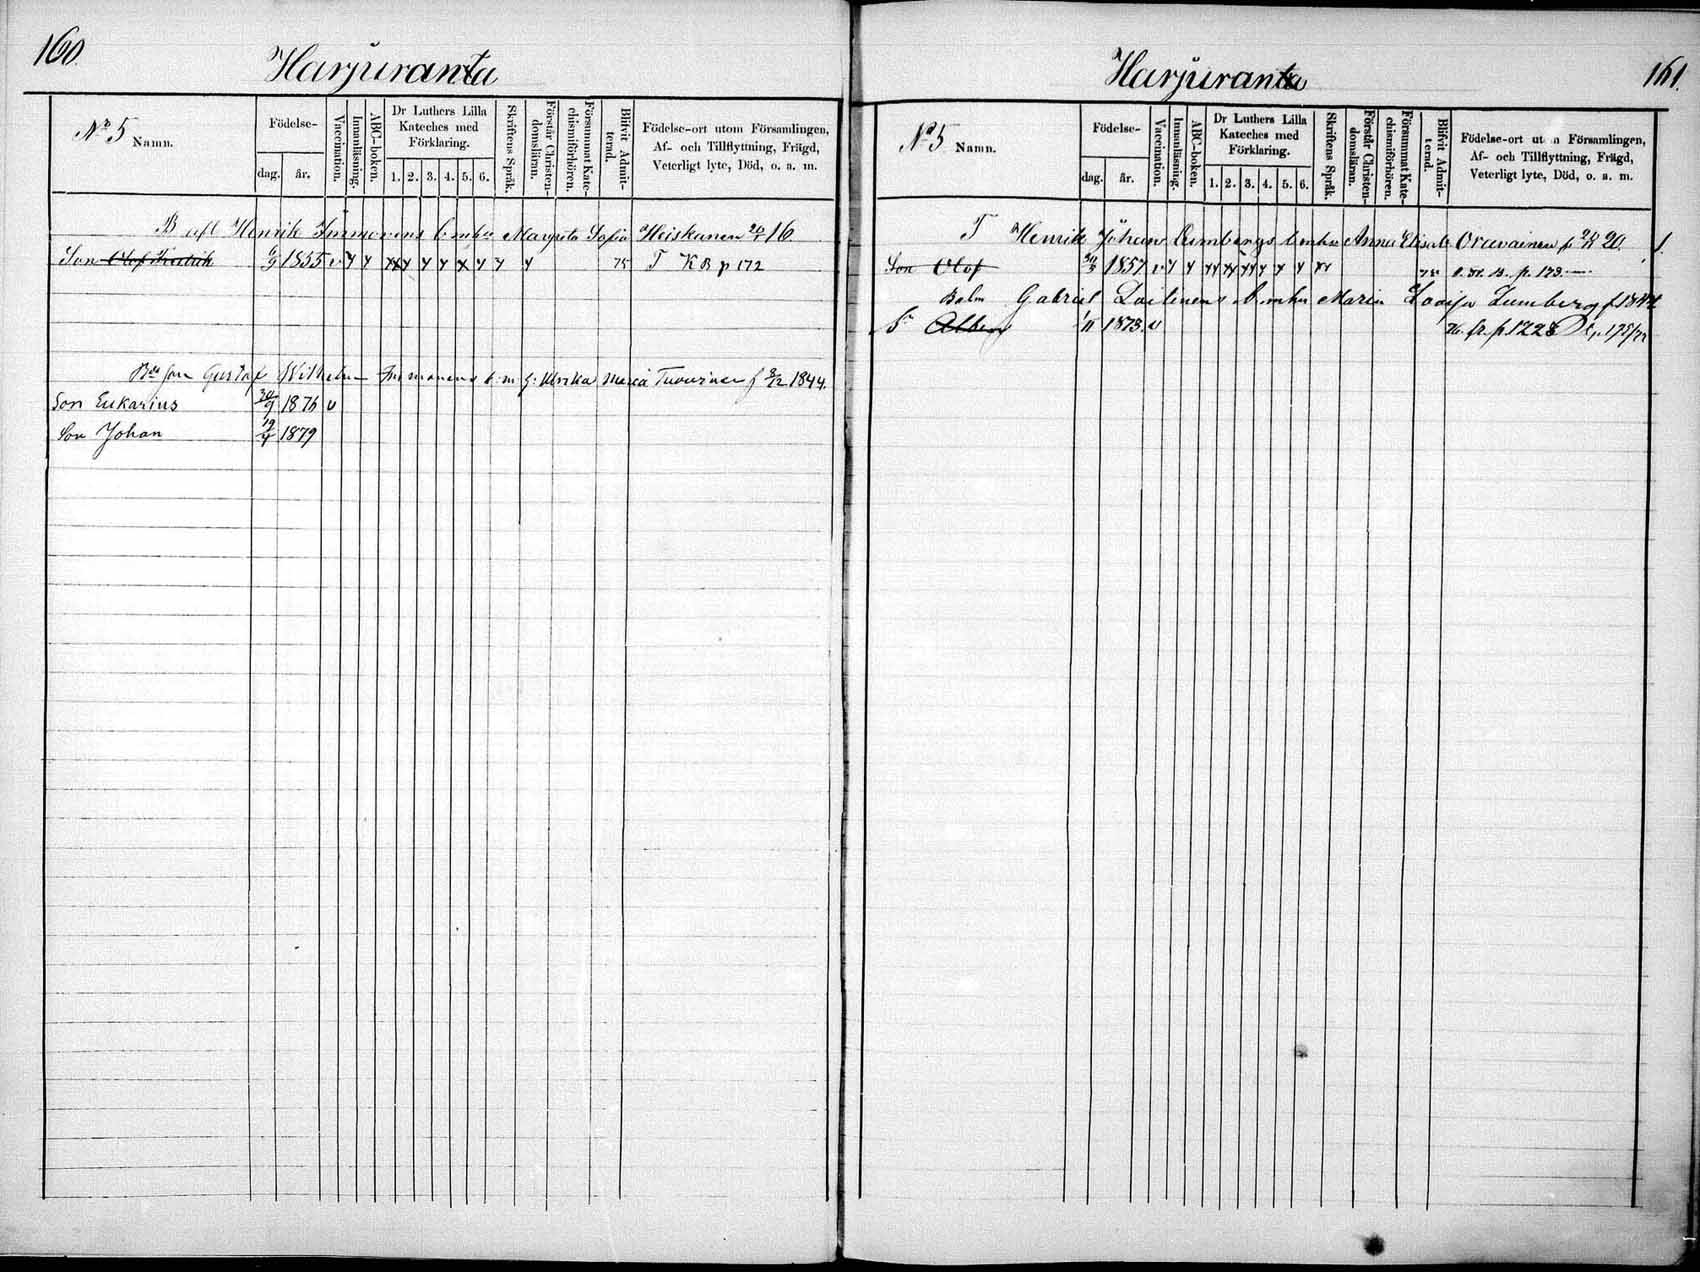 160.
Harjuranta
No 5 Namn.
Födelse-
dag. år.
Vaccination.
Innanläsning.
ABC-boken.
Dr Luthers Lilla
Kateches med
Förklaring.
1. 2. 3. 4. 5. 6.
Skriftens Språk.
Förstår Christen-
domsläran.
Försummat Kate-
chismiförhören.
Blifvit Admit-
terad.
Födelse-ort utom Församlingen,
Af- och Tillflyttning, Frägd,
Veterligt lyte, Död, o. a. m.
B afl Henrik Immonens Margreta Sofia Heiskanen 16.
Son Olof 1855 v 75 T KB p 172
Gustaf Wilhelm Immonens b. m G: Ulrika Maria f 8/12 1844.
Son Eukarius 30/9 1876 v
Son Johan 19/4 1879
161.
Harjuranta
No 5 Namn.
Födelse-
dag. år.
Vaccination.
Innanläsning.
ABC-boken.
Dr Luthers Lilla
Kateches med
Förklaring.
1. 2. 3. 4. 5. 6.
Skriftens Språk.
Förstår Christen-
domsläran.
Försummat Kate-
chismiförhören.
Blifvit Admit-
terad.
Födelse-ort utom Församlingen,
Af- och Tillflyttning, Frägd,
Veterligt lyte, Död, o. a. m.
T Henrik Johan Limbergs Anna Elisab Oravainen f 20. 1.
Son Olof 1857 v p. 173
Gabriel Maria Lovisa Lumberg f 1844
1873 v